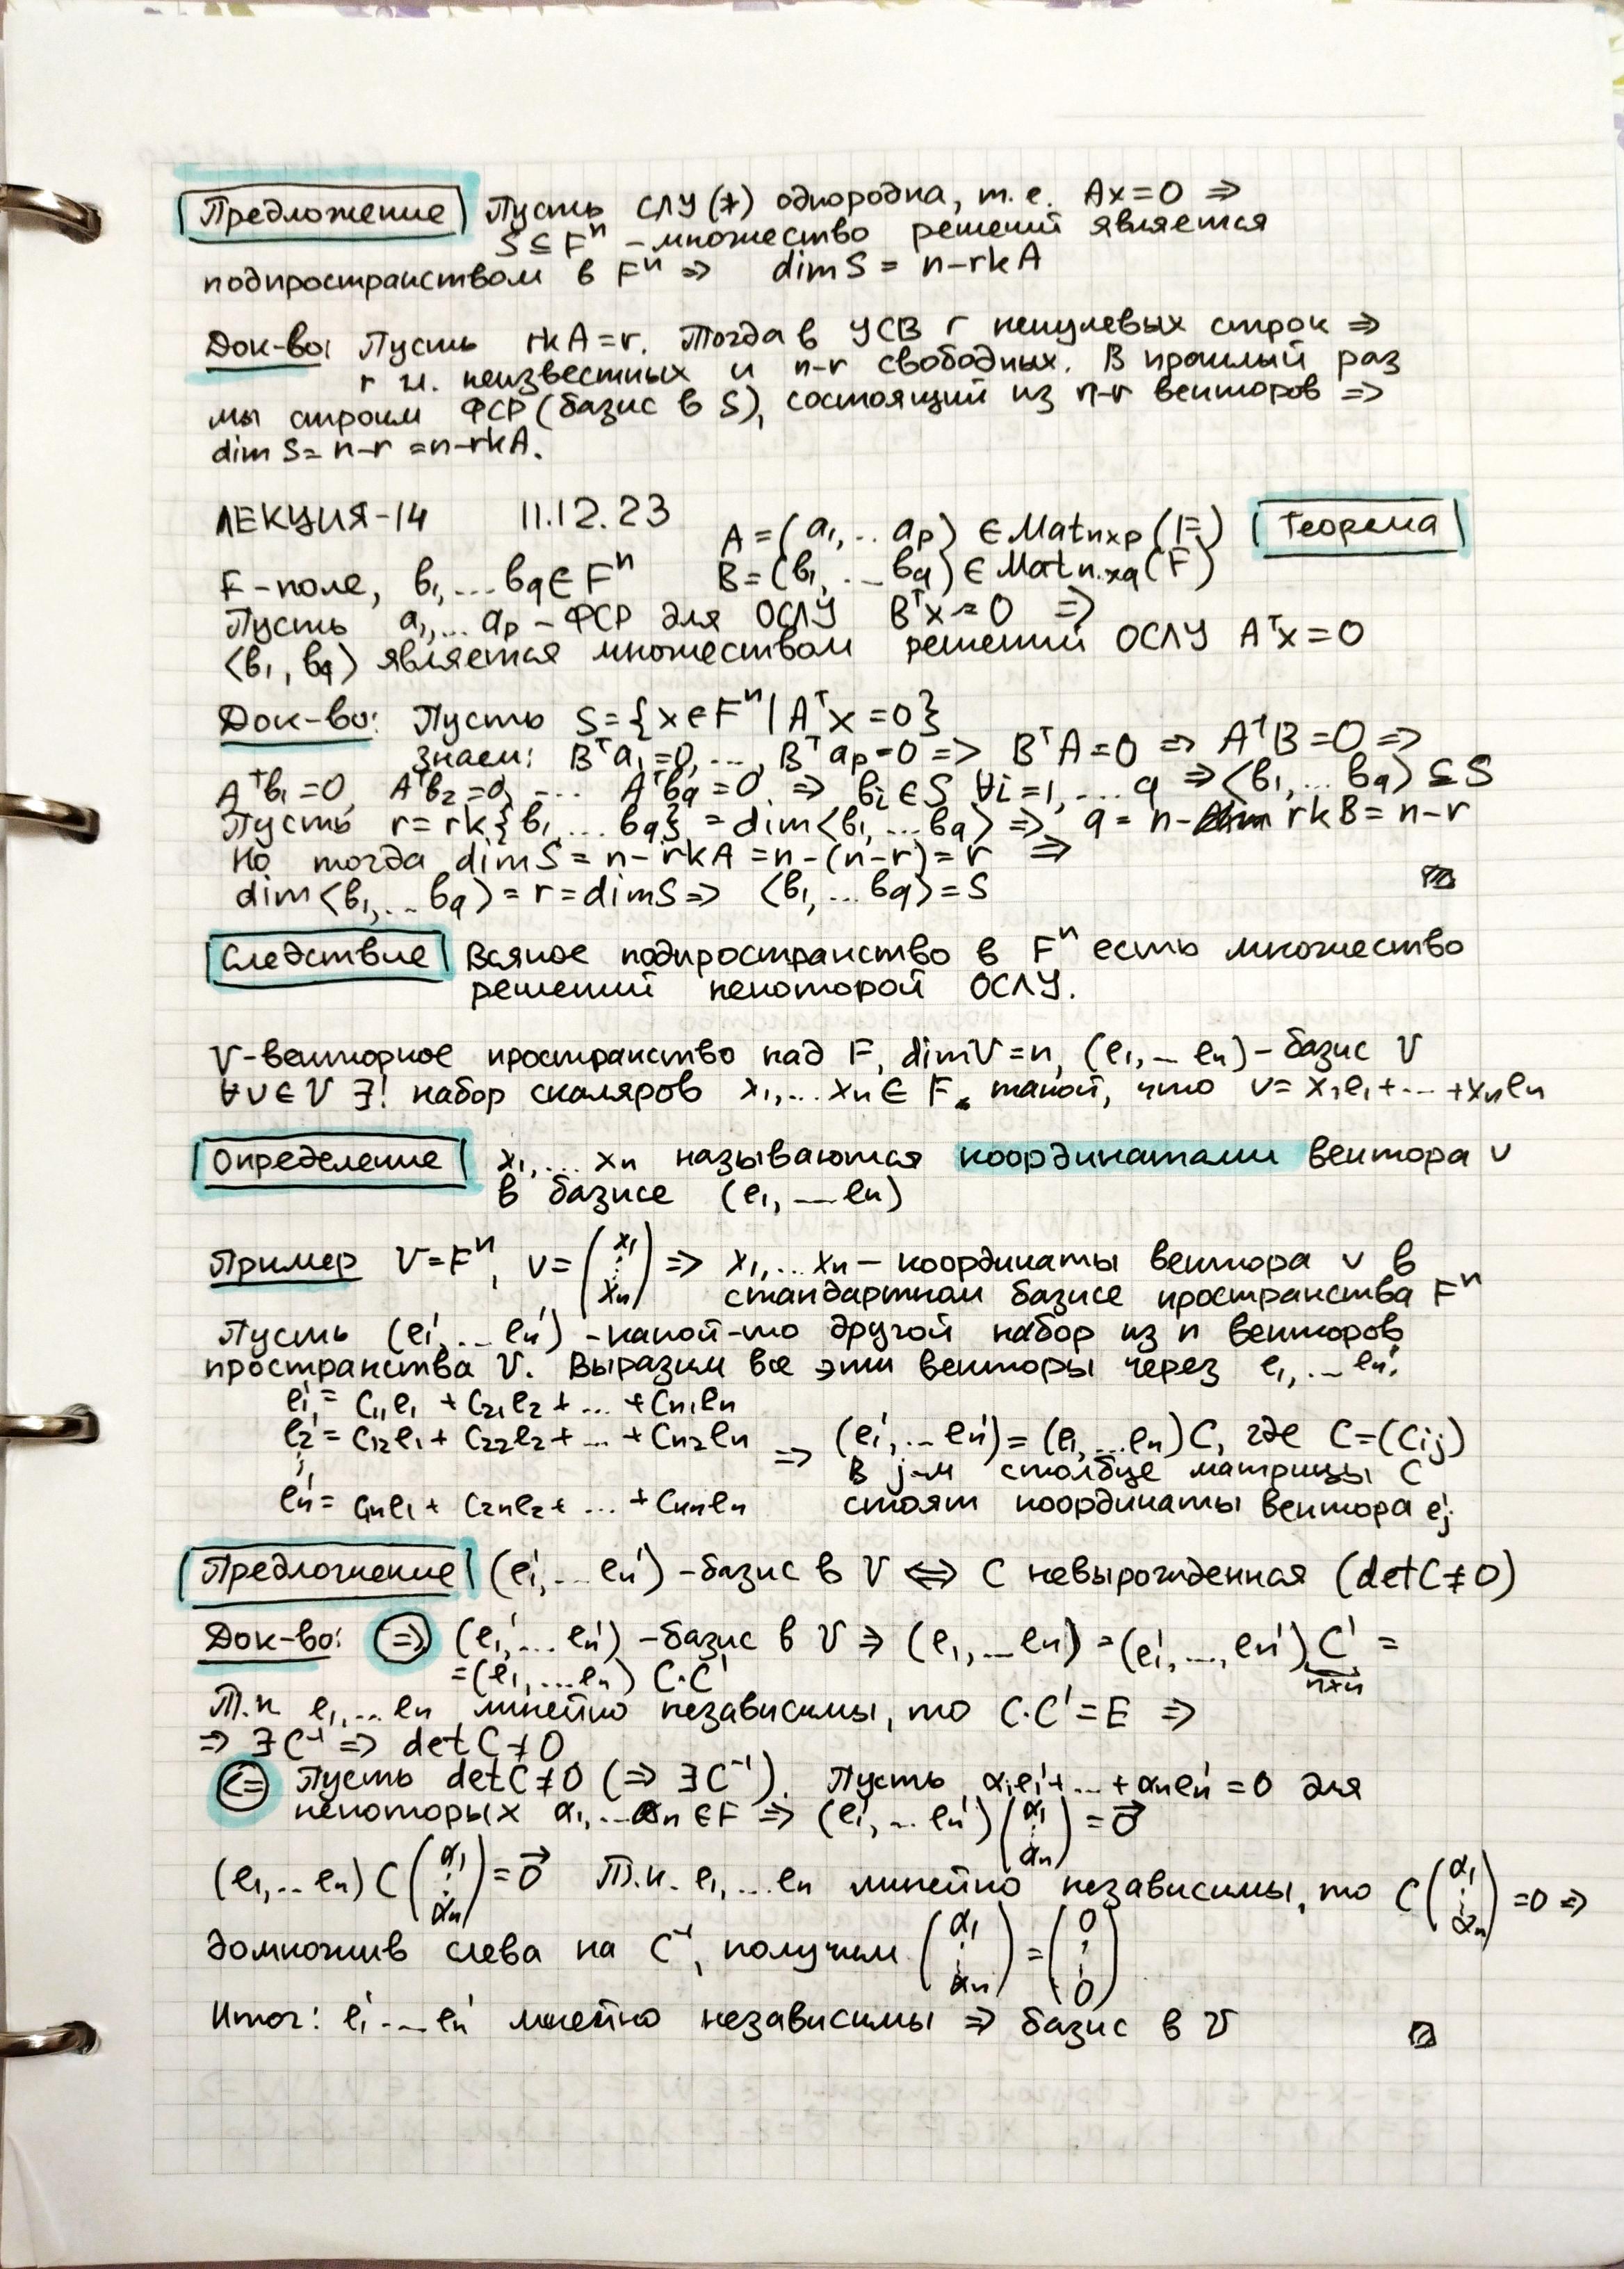 Предложение Пусть СЛУ (*) однородна, т.е. Ax=0 ⇒
S⊆Fⁿ – множество решений является
подпространством в Fⁿ ⇒ dim S = n–rkA
Док-во: Пусть rkA=r. Тогда в УСВ r ненулевых строк ⇒
r гл. неизвестных и n–r свободных. В прошлый раз
мы строим ФСР (базис в S), состоящий из n–r векторов ⇒
dim S = n–r = n–rkA.
ЛЕКЦИЯ-14 11.12.23
A=(a₁,.. aₚ) ∈ Matₙₓₚ(F) Теорема
F–поле, b₁,...b_q∈Fⁿ B=(b₁,...b_q)∈Matₙₓ_q(F)
Пусть a₁,...aₚ – ФСР для ОСЛУ Bᵀx=0 ⇒
⟨b₁, b_q⟩ является множеством решений ОСЛУ Aᵀx=0
Док-во: Пусть S={x∈Fⁿ | Aᵀx=0}
Знаем: Bᵀa₁=0,..., Bᵀaₚ=0 ⇒ BᵀA=0 ⇒ AᵀB=0 ⇒
Aᵀb₁=0, Aᵀb₂=0, ... Aᵀb_q=0 ⇒ bᵢ∈S ∀i=1,...q ⇒ ⟨b₁,...b_q⟩⊆S
Пусть r=rk{b₁,...b_q} = dim⟨b₁,...b_q⟩ ⇒ q = n– rkB = n–r
Но тогда dimS = n–rkA = n–(n–r) = r ⇒
dim⟨b₁,...b_q⟩ = r = dimS ⇒ ⟨b₁,...b_q⟩ = S
Следствие Всякое подпространство в Fⁿ есть множество
решений некоторой ОСЛУ.
V–векторное пространство над F, dimV=n, (e₁,...eₙ)–базис V
∀v∈V ∃! набор скаляров x₁,...xₙ∈F такой, что v=x₁e₁+...+xₙeₙ
Определение x₁,...xₙ называются координатами вектора v
в базисе (e₁,...eₙ)
Пример V=Fⁿ, v=(x₁ ⋮ xₙ) ⇒ x₁,...xₙ – координаты вектора v в
стандартном базисе пространства Fⁿ
Пусть (e₁',...eₙ') – какой-то другой набор из n векторов
пространства V. Выразим все эти векторы через e₁,...eₙ:
e₁' = c₁₁e₁ + c₂₁e₂ + ... + cₙ₁eₙ
e₂' = c₁₂e₁ + c₂₂e₂ + ... + cₙ₂eₙ ⇒ (e₁',...eₙ') = (e₁,...eₙ)C, где C=(cᵢⱼ)
⋮ в j-м столбце матрицы C
eₙ' = c₁ₙe₁ + c₂ₙe₂ + ... + cₙₙeₙ стоят координаты вектора eⱼ'
Предложение (e₁',...eₙ') – базис в V ⇔ C невырожденная (detC≠0)
Док-во: ⇒ (e₁',...eₙ') – базис в V ⇒ (e₁,...eₙ) = (e₁',...,eₙ') C' =
=(e₁,...eₙ) C·C' n×n
Т.к e₁,...eₙ линейно независимы, то C·C'=E ⇒
⇒ ∃C⁻¹ ⇒ detC≠0
⇐ Пусть detC≠0 (⇒ ∃C⁻¹). Пусть α₁e₁'+...+αₙeₙ'=0 для
некоторых α₁,...αₙ∈F ⇒ (e₁',...eₙ')(α₁ ⋮ αₙ) = 0⃗
(e₁,...eₙ) C (α₁ ⋮ αₙ) = 0⃗ Т.к. e₁,...eₙ линейно независимы, то C(α₁ ⋮ αₙ)=0 ⇒
домножив слева на C⁻¹, получим (α₁ ⋮ αₙ) = (0 ⋮ 0)
Итог: e₁'...eₙ' линейно независимы ⇒ базис в V